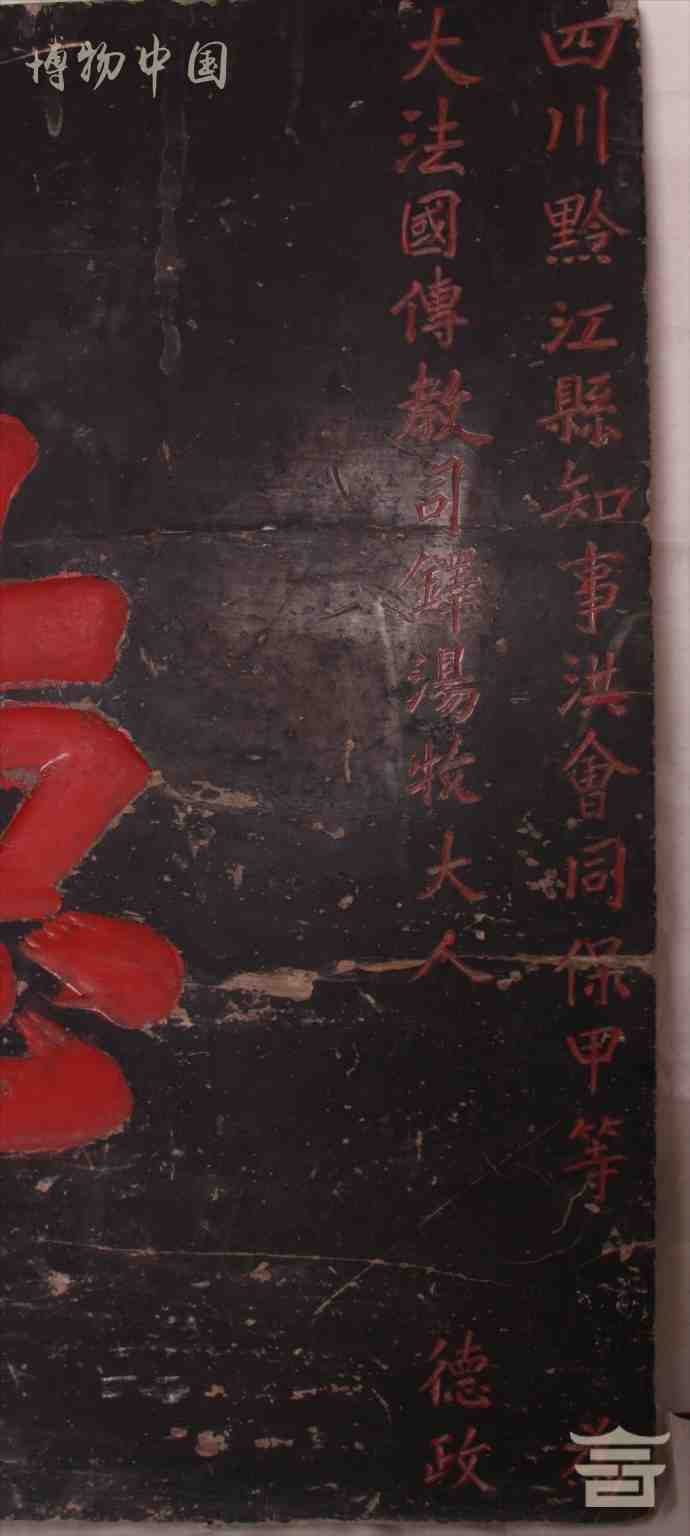 四川黔江縣知事洪會同保甲等
大法國傳教司鐸湯牧大人
德政
博物中国